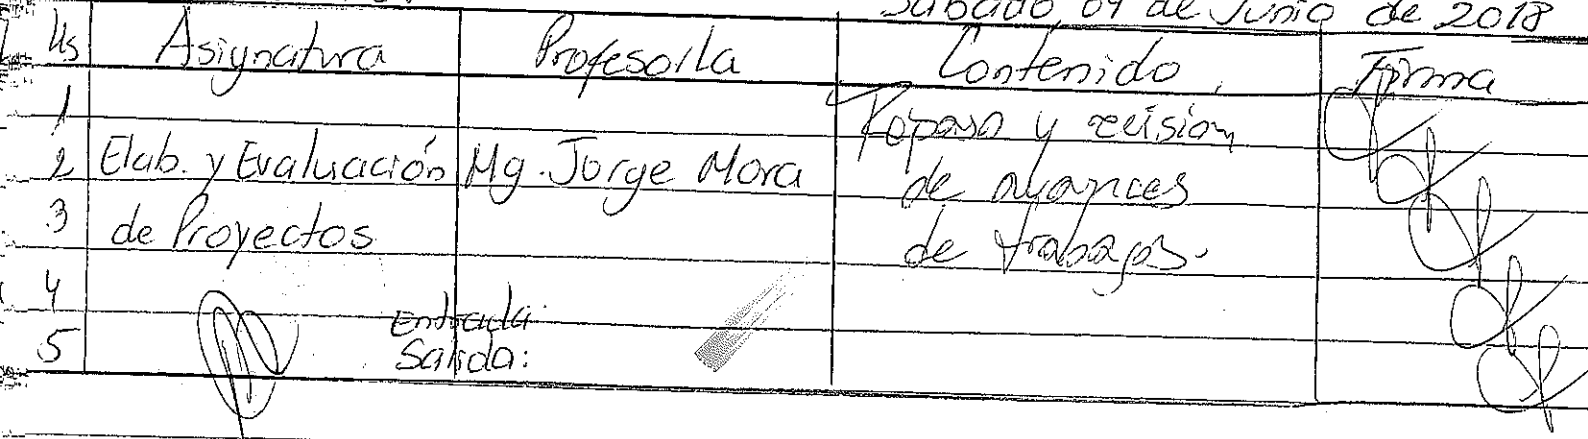 Sábado, 09 de Junio de 2018
Hs Asignatura Profesor/la Contenido Firma
1 Repaso y revision
2 Elab. y Evaluación Mg. Jorge Mora de avances
3 de Proyectos de trabajos.
4 Entrada:
5 Salida: